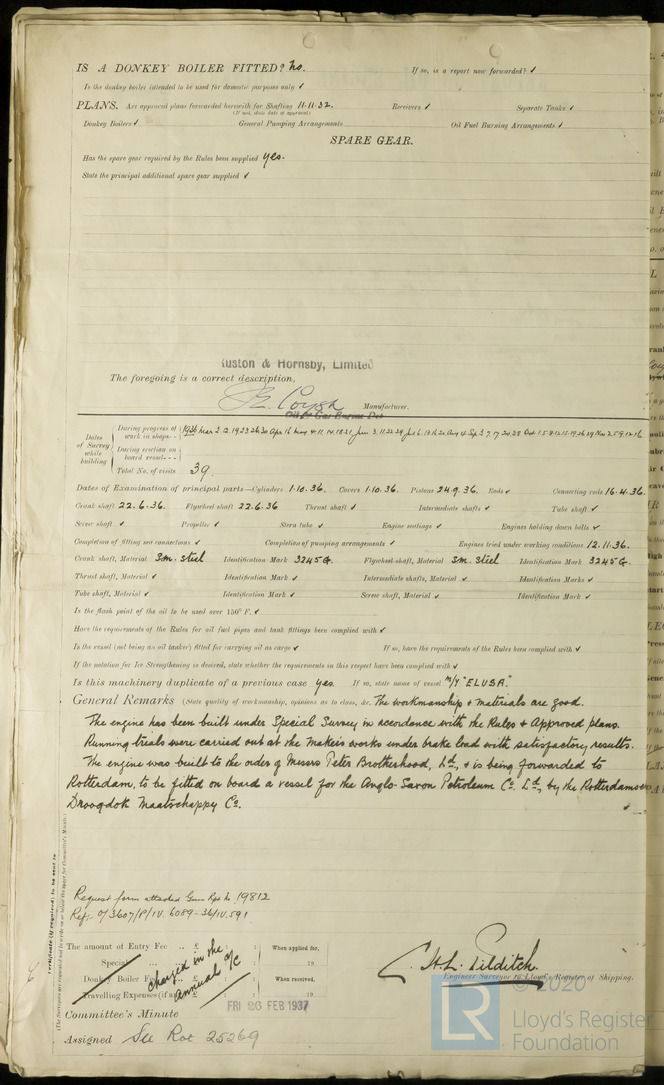 IS A DONKEY BOILER FITTED? No. If so, is a report now forwarded? ✓
Is the donkey boiler intended to be used for domestic purposes only ✓
PLANS. Are approved plans forwarded herewith for Shafting 11.11.32. Receivers ✓ Separate Tanks ✓
(If not, state date of approval)
Donkey Boilers ✓ General Pumping Arrangements Oil Fuel Burning Arrangements ✓
SPARE GEAR.
Has the spare gear required by the Rules been supplied yes.
State the principal additional spare gear supplied ✓
Ruston & Hornsby, Limited
The foregoing is a correct description,
Manufacturer.
Dates of Survey while building
During progress of work in shops - -
During erection on board vessel - - -
Total No. of visits 39.
Dates of Examination of principal parts—Cylinders 1.10.36. Covers 1.10.36. Pistons 24.9.36. Rods ✓ Connecting rods 16.4.36.
Crank shaft 22.6.36. Flywheel shaft 22.6.36 Thrust shaft ✓ Intermediate shafts ✓ Tube shaft ✓
Screw shaft ✓ Propeller ✓ Stern tube ✓ Engine seatings ✓ Engines holding down bolts ✓
Completion of fitting sea connections ✓ Completion of pumping arrangements ✓ Engines tried under working conditions 12.11.36.
Crank shaft, Material Sm. steel Identification Mark 3245G. Flywheel shaft, Material Sm. steel Identification Mark 3245G.
Thrust shaft, Material ✓ Identification Mark ✓ Intermediate shafts, Material ✓ Identification Marks ✓
Tube shaft, Material ✓ Identification Mark ✓ Screw shaft, Material ✓ Identification Mark ✓
Is the flash point of the oil to be used over 150° F. ✓
Have the requirements of the Rules for oil fuel pipes and tank fittings been complied with ✓
Is the vessel (not being an oil tanker) fitted for carrying oil as cargo ✓ If so, have the requirements of the Rules been complied with ✓
If the notation for Ice Strengthening is desired, state whether the requirements in this respect have been complied with ✓
Is this machinery duplicate of a previous case yes. If so, state name of vessel M/Y "ELUSA."
General Remarks (State quality of workmanship, opinions as to class, &c. The workmanship & materials are good.
The engine has been built under Special Survey in accordance with the Rules & Approved plans.
Running trials were carried out at the Makers works under brake load with satisfactory results.
The engine was built to the order of Messrs Peter Brotherhood, Ld, & is being forwarded to
Rotterdam, to be fitted on board a vessel for the Anglo-Saxon Petroleum Co. Ld, by the Rotterdamsche
Droogdok Maatschappy Co.
Request form attached Gmn Rpt No 19812
Ref:- 0/3607/P/IV. 6089-36/IV.591
The amount of Entry Fee .. £ : : When applied for,
Special .. £ : : 19
Donkey Boiler Fee £ : : When received,
Travelling Expenses (if any) £ : : 19
Charged in the annual a/c
H.L. Pilditch.
Engineer Surveyor to Lloyd's Register of Shipping.
FRI 26 FEB 1937
Committee's Minute
Assigned See Rot 25269
© 2020
LR
Lloyd's Register
Foundation